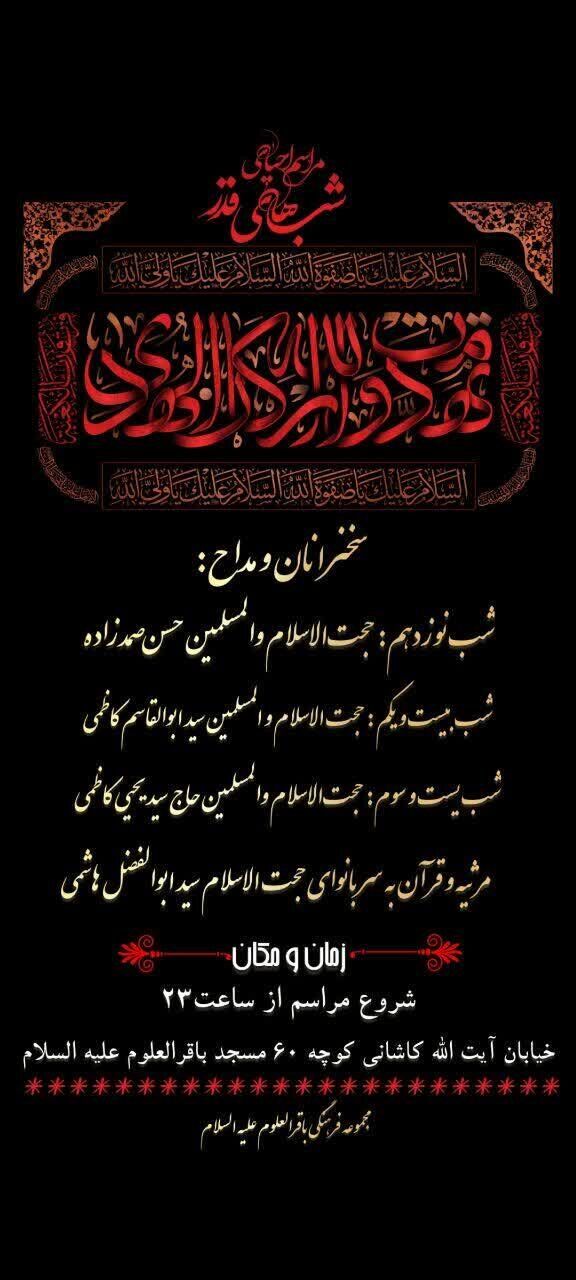 مراسم احیاهی
شب‌های قدر
السلام علیک یا صفوة الله السلام علیک یا ولی الله
تهدمت و الله ارکان الهدی
فزت و رب الکعبة
فزت و رب الکعبة
السلام علیک یا صفوة الله السلام علیک یا ولی الله
سخنرانان و مداح:
شب نوزدهم: حجت الاسلام والمسلمین حسن صمدزاده
شب بیست ویکم: حجت الاسلام و المسلمین سید ابوالقاسم کاظمی
شب یست و سوم: حجت الاسلام والمسلمین حاج سید یحیی کاظمی
مرثیه و قرآن به سربانوای حجت الاسلام سید ابوالفضل هاشمی
زمان و مکان
شروع مراسم از ساعت ۲۳
خیابان آیت الله کاشانی کوچه ۶۰ مسجد باقرالعلوم علیه السلام
مجموعه فرهنگی باقرالعلوم علیه السلام